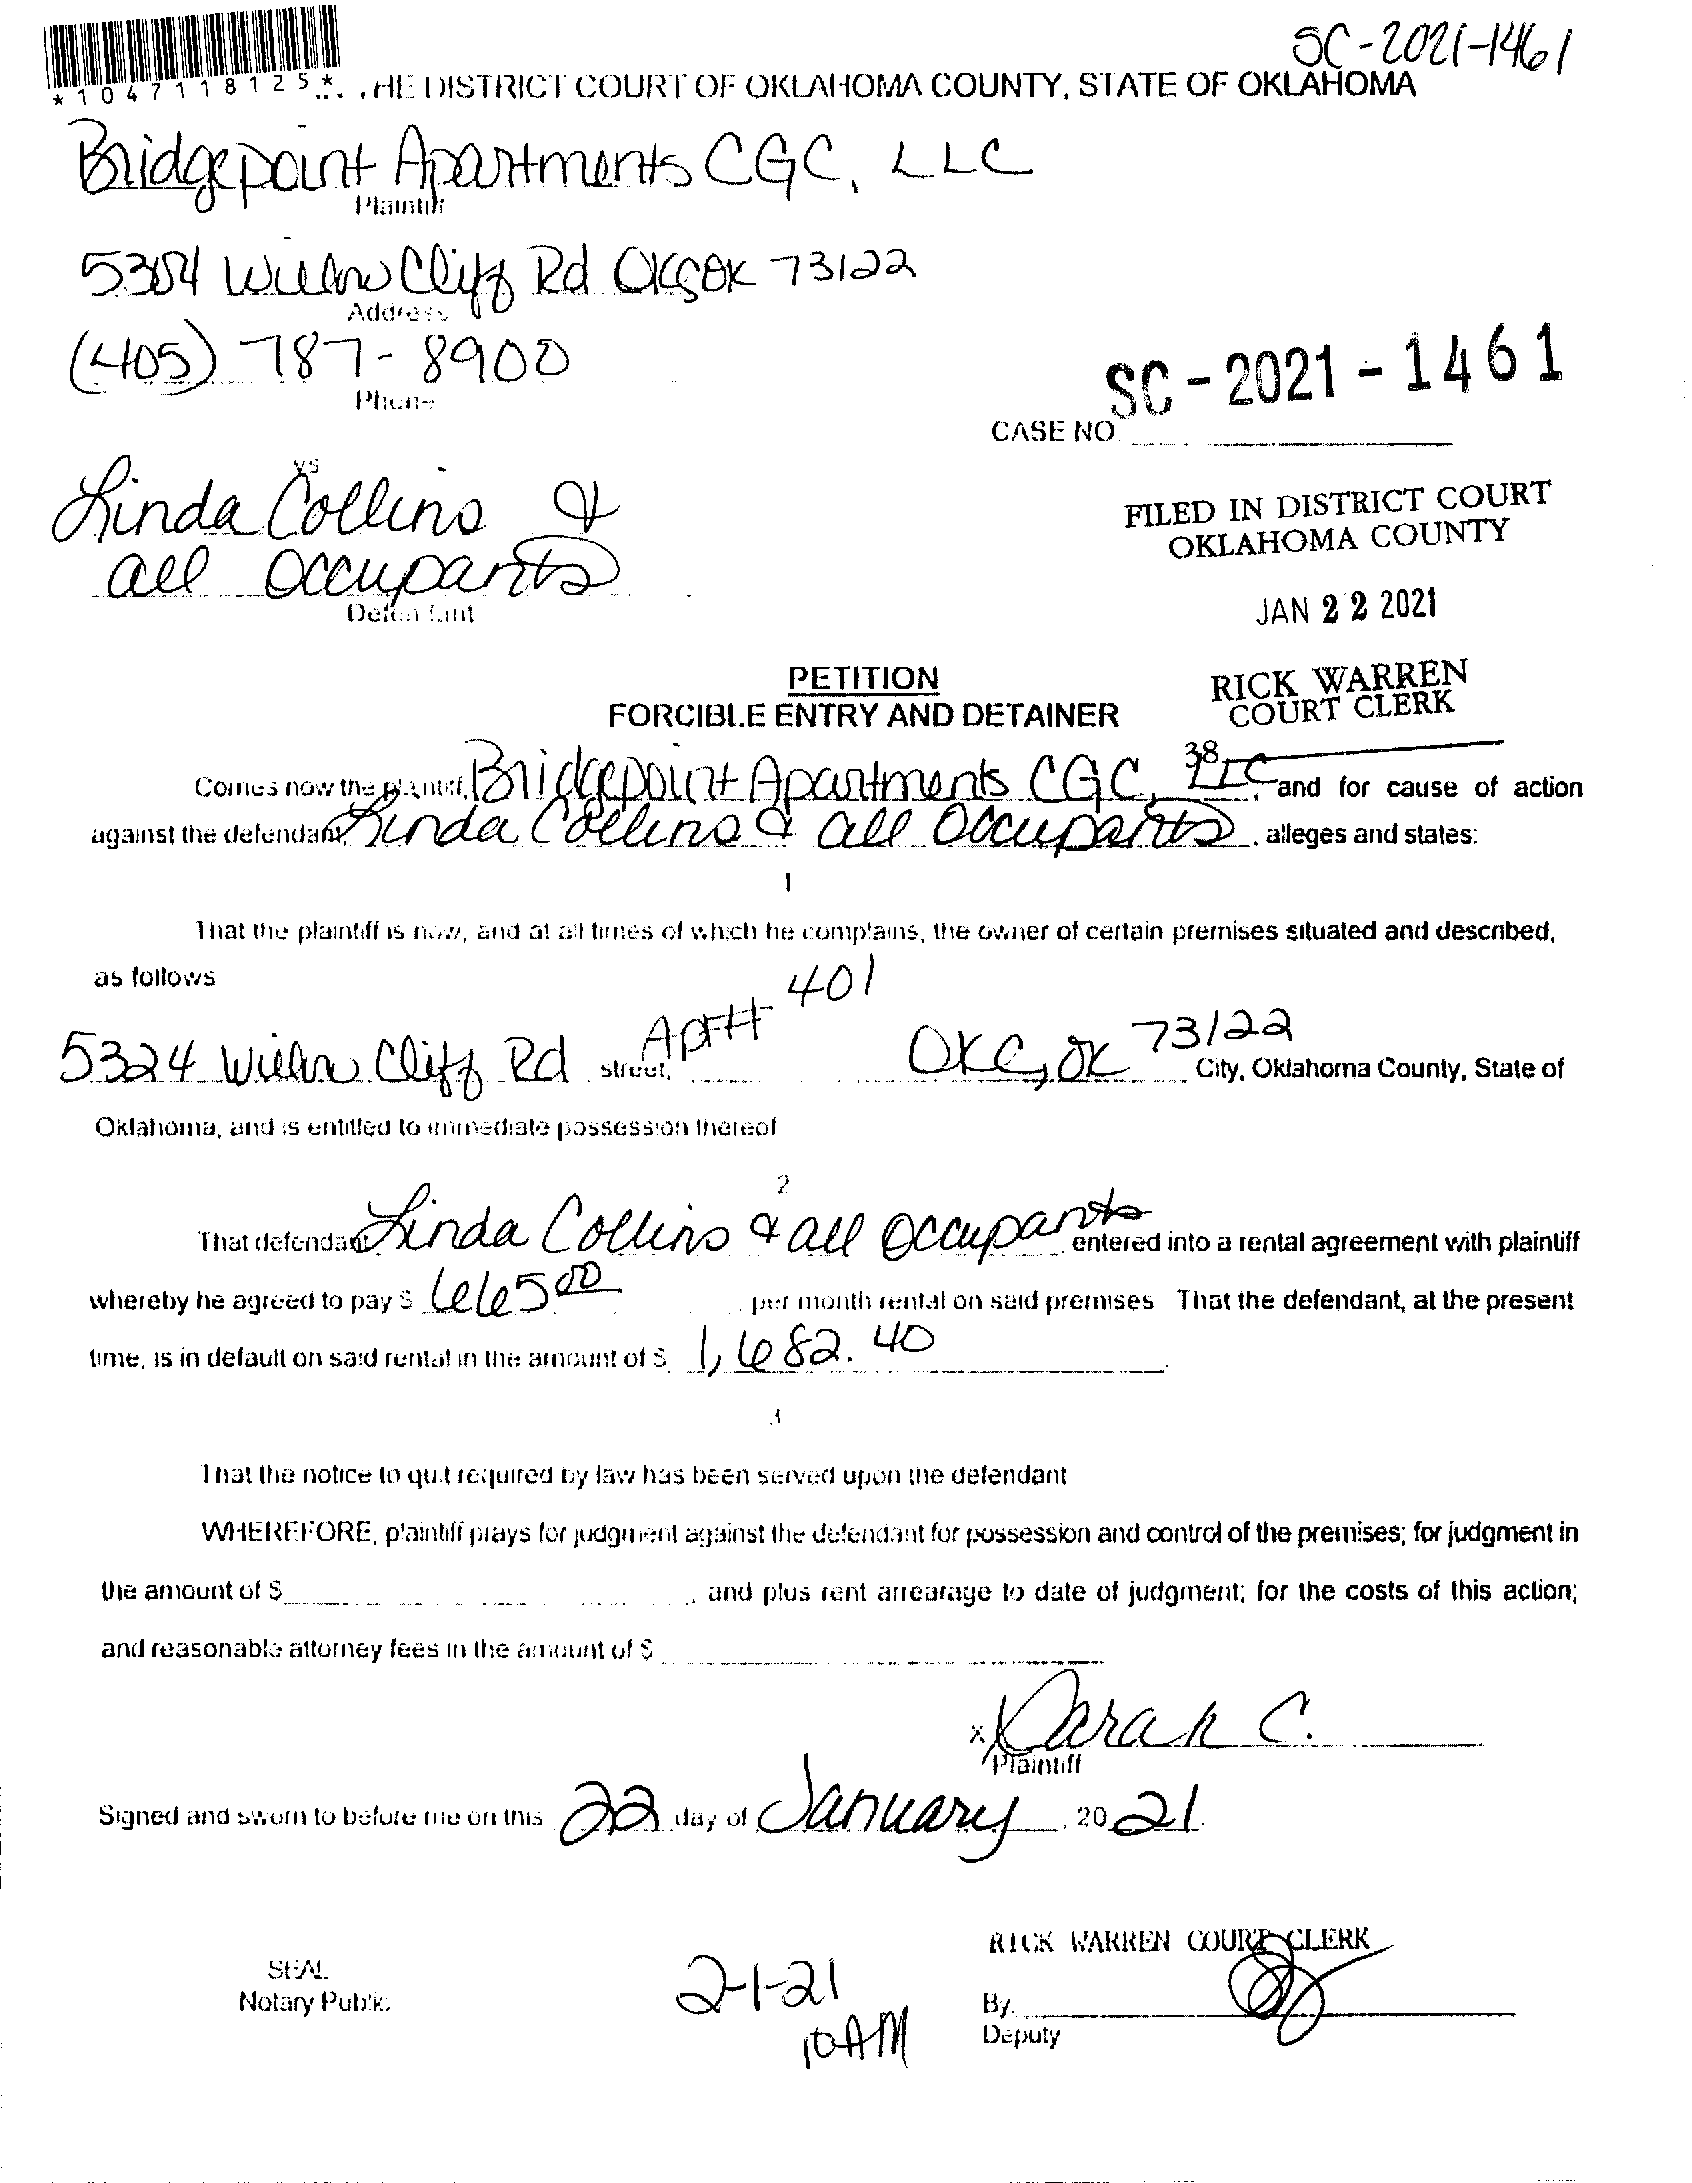 SC-2021-1461
*1047118125*
HE DISTRICT COURT OF OKLAHOMA COUNTY, STATE OF OKLAHOMA
Bridgepoint Apartments CGC, LLC
Plaintiff
5304 Willow Cliff Rd OKC OK 73122
Address
(405) 787-8900
Phone
SC-2021-1461
CASE NO.
vs
Linda Collins &
all occupants
Defendant
FILED IN DISTRICT COURT
OKLAHOMA COUNTY
JAN 22 2021
RICK WARREN
COURT CLERK
38
PETITION
FORCIBLE ENTRY AND DETAINER
Comes now the plaintiff, Bridgepoint Apartments CGC, LLC, and for cause of action
against the defendant, Linda Collins & all Occupants, alleges and states:
1
That the plaintiff is now, and at all times of which he complains, the owner of certain premises situated and described,
as follows
5324 Willow Cliff Rd street, Apt# 401 OKC, OK 73122 City, Oklahoma County, State of
Oklahoma, and is entitled to immediate possession thereof
2
That defendant Linda Collins & all occupants entered into a rental agreement with plaintiff
whereby he agreed to pay $ 665.00 per month rental on said premises That the defendant, at the present
time, is in default on said rental in the amount of $ 1,682.40
3
That the notice to quit required by law has been served upon the defendant
WHEREFORE, plaintiff prays for judgment against the defendant for possession and control of the premises; for judgment in
the amount of $ , and plus rent arrearage to date of judgment; for the costs of this action;
and reasonable attorney fees in the amount of $
x C.
Plaintiff
Signed and sworn to before me on this 22 day of January, 2021.
RICK WARREN COURT CLERK
SEAL
Notary Public
2-1-21
10AM
By.
Deputy